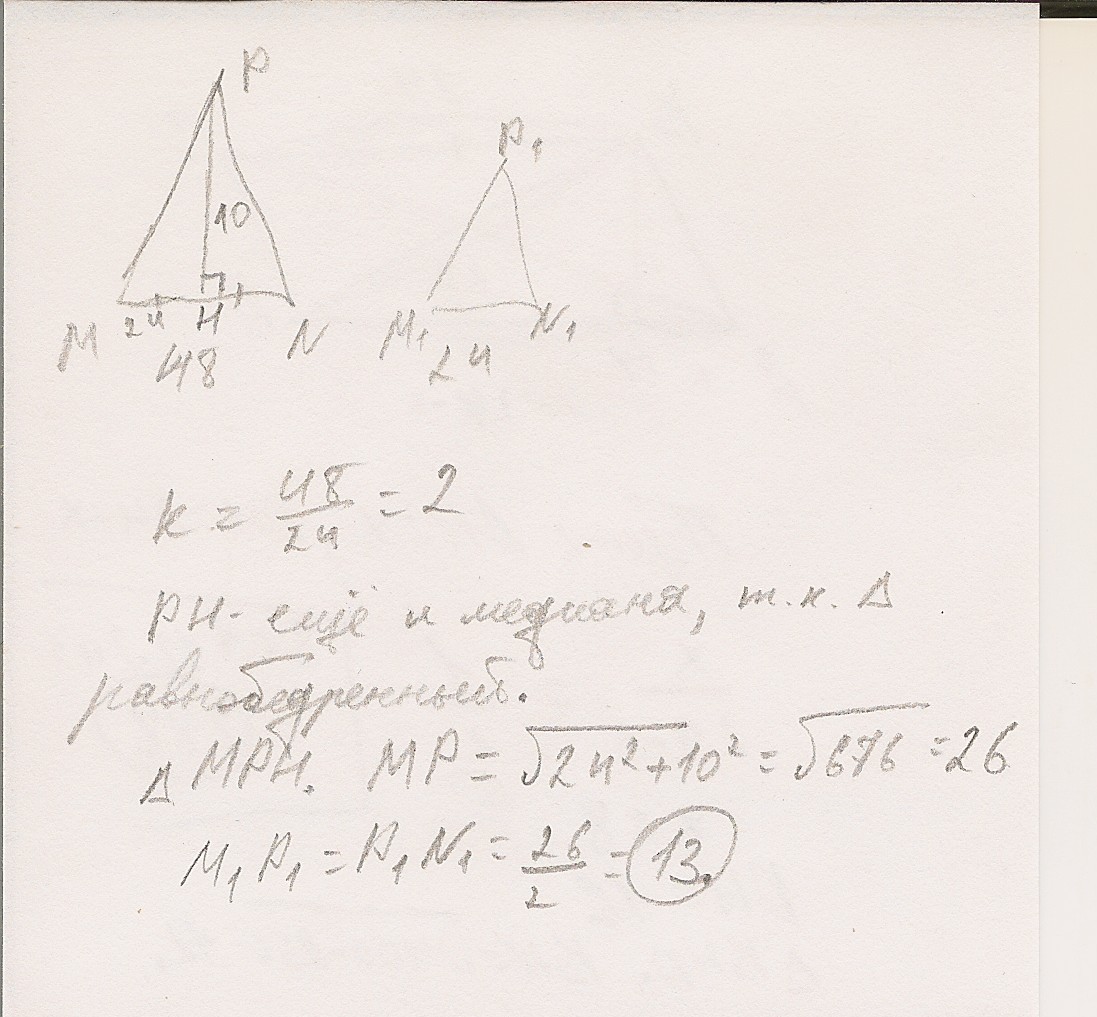 P
P₁
10
M 24 H N M₁ N₁
48 24
k = 48/24 = 2
PH - ещё и медиана, т.к. Δ
равнобедренный.
Δ MPH. MP = √24²+10² = √676 = 26
M₁P₁ = P₁N₁ = 26/2 = 13.